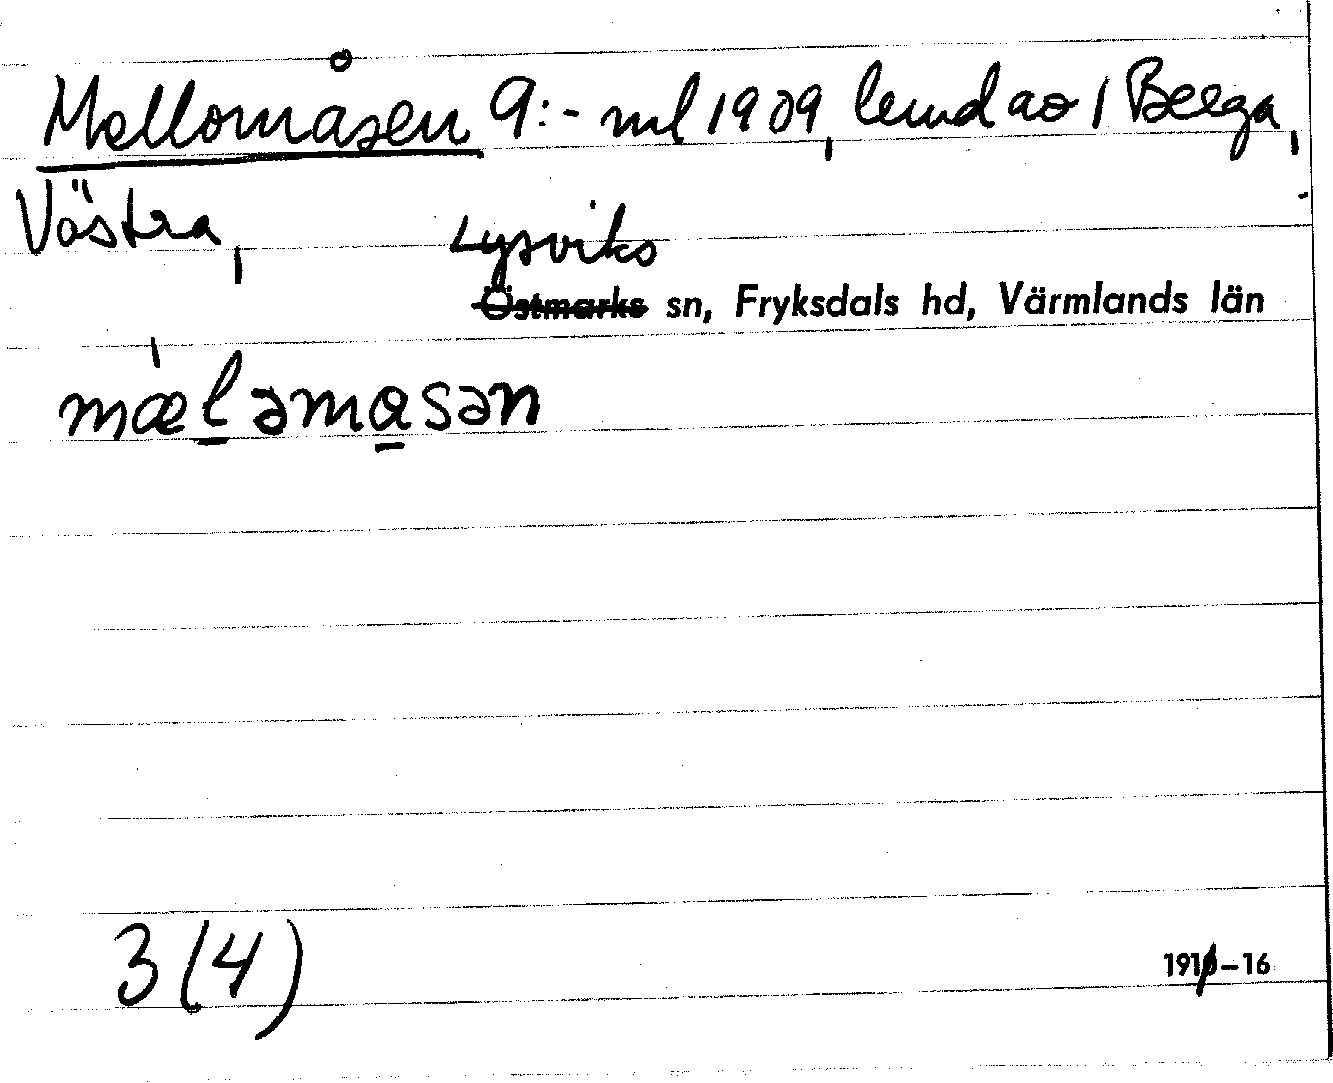 Mellomåsen 9:- ml 1909, lemd ao 1 Berga,
Västra,
Lysviks
Östmarks sn, Fryksdals hd, Värmlands län
mæləmɑsən
3 (4) 1911-16